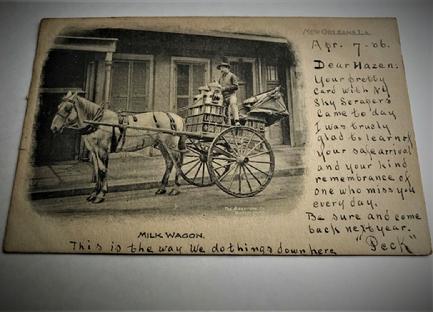 NEW ORLEANS, LA
Apr. 7 - 06.
Dear Hazen:
Your pretty
card with NY
Sky Scrapers
came to day
I was truely
glad to learn of
your safe arrival
and your kind
remembrance of
one who miss you
every day.
Be sure and come
back next year.
"Peck"
MILK WAGON.
This is the way We do things down here